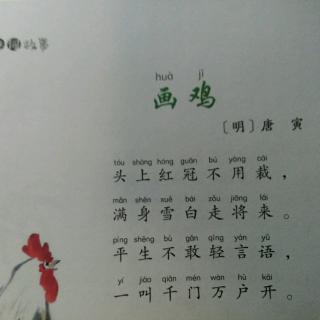 故事
huà jī
画鸡
〔明〕唐 寅
tóu shàng hóng guān bú yòng cái
头上红冠不用裁，
mǎn shēn xuě bái zǒu jiāng lái
满身雪白走将来。
píng shēng bù gǎn qīng yán yǔ
平生不敢轻言语，
yí jiào qiān mén wàn hù kāi
一叫千门万户开。